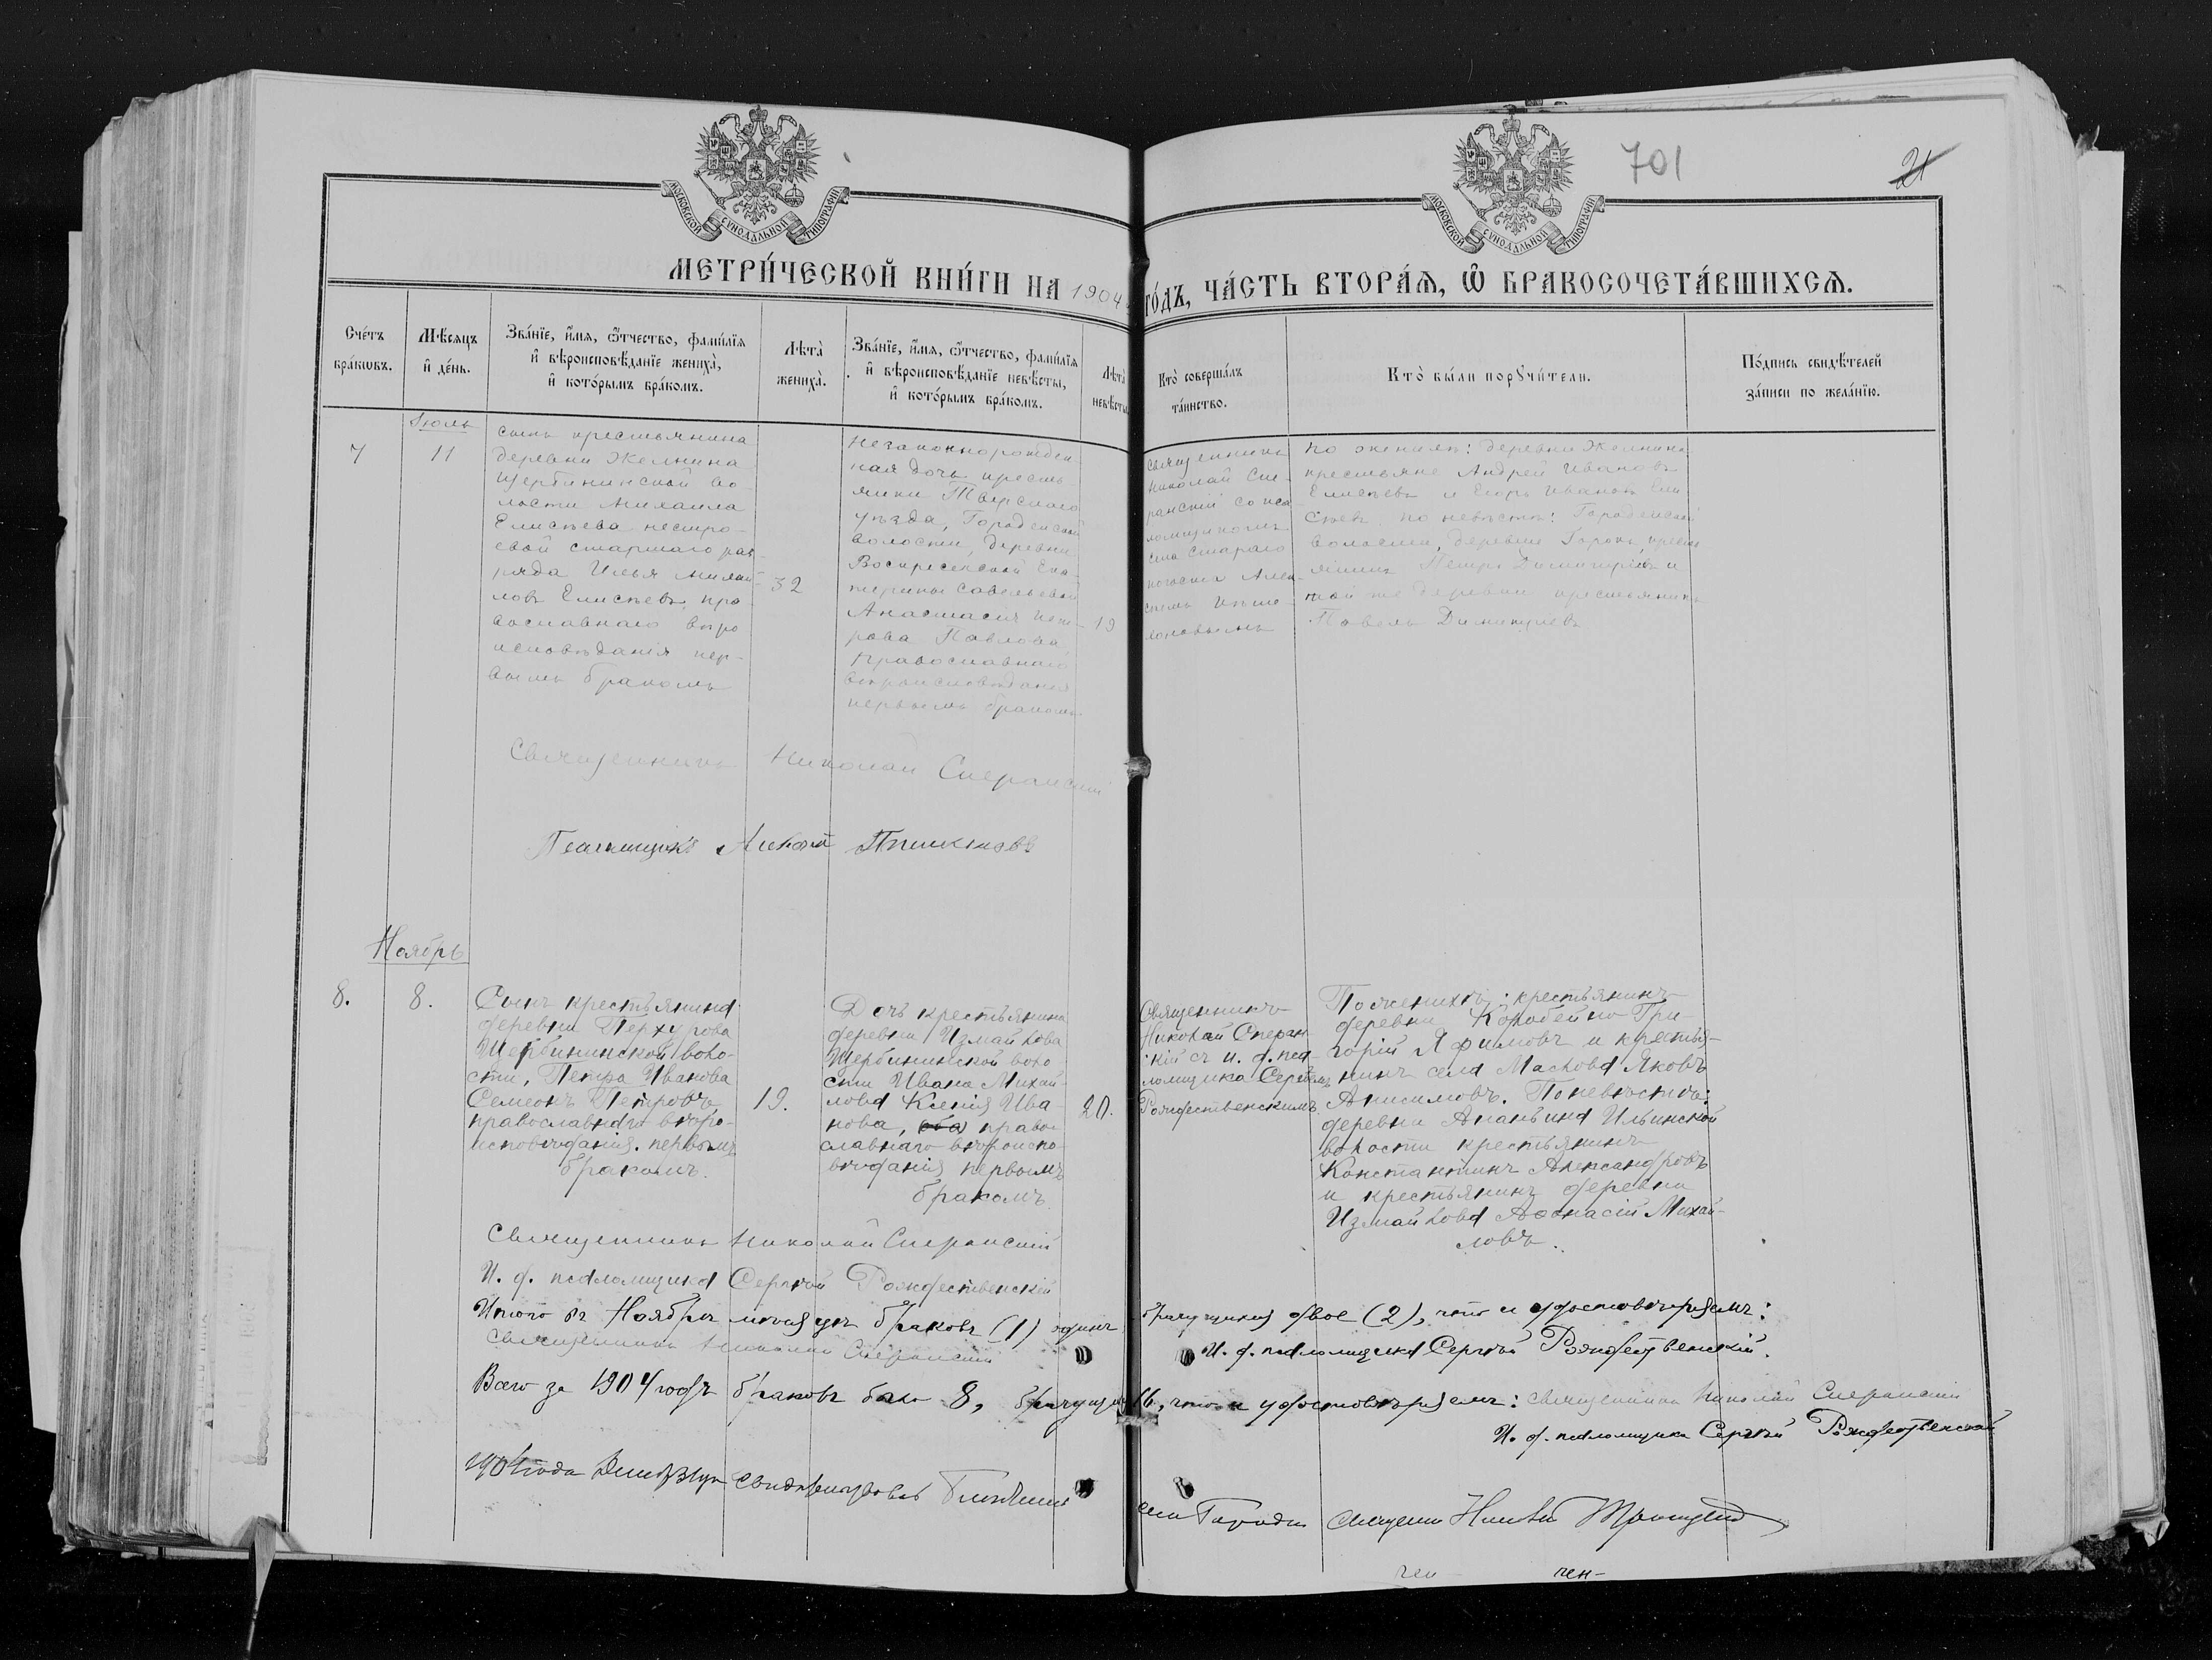 701
21
МОСКОВСКОЙ СѴНОДАЛЬНОЙ ТИПОГРАФІИ
МОСКОВСКОЙ СѴНОДАЛЬНОЙ ТИПОГРАФІИ
МЕТРИ́ЧЕСКОЙ КНИ́ГИ НА 1904 ГО́ДЪ, ЧА́СТЬ ВТОРА́Ѧ, Ѡ БРАКОСОЧЕТА́ВШИХСѦ.
Сче́тъ
бра́кѡвъ.
Мѣ́сѧцъ
и҆ де́нь.
Зва́нїе, и҆́мѧ, ѻ҆́тчество, фами́лїѧ
и҆ вѣроисповѣ́данїе жениха̀,
и҆ кото́рымъ бра́комъ.
Лѣта̀
жениха̀.
Зва́нїе, и҆́мѧ, ѻ҆́тчество, фами́лїѧ
и҆ вѣроисповѣ́данїе невѣ́сты,
и҆ кото́рымъ бра́комъ.
Лѣта̀
невѣ́сты.
Кто̀ соверша́лъ
та́инство.
Кто̀ бы́ли порꙋчи́тели.
По́дпись свидѣ́телей
за́писи по жела́нїю.
Іюль
7
11
сынъ крестьянина
деревни Желнина
Щербининской во-
лости Михаила
Елисѣева нестро-
евой старшаго раз-
ряда Илья Михай-
ловъ Елисѣевъ, пра-
вославнаго вѣро
исповѣданія пер-
вымъ бракомъ
32
незаконнорожден-
ная дочь кресть-
янки Тверскаго
уѣзда, Городенской
волости, деревни
Воскресенской Ека-
терины Савельевой
Анастасія Пет-
рова Павлова,
православнаго
вѣроисповѣданія
первымъ бракомъ
19
священникъ
Николай Спе-
ранскій со пса-
ломщикомъ
села Стараго
погоста Алек-
По женихѣ: деревни Желнина
крестьяне Андрей Ивановъ
Елисѣевъ и Егоръ Ивановъ Ели
сѣевъ по невѣстѣ: Городенской
волости, деревни кресть
янинъ Петръ Димитріевъ и
той же деревни крестьянинъ
Павелъ Димитріевъ
Священникъ Николай Сперанскій
Псаломщикъ
Ноябрь
8.
8.
Сынъ крестьянина
деревни Перхурова
Щербининской воло-
сти, Петра Иванова
Семеонъ Петровъ
православнаго вѣро-
исповѣданія. первымъ
бракомъ.
19.
Дочь крестьянина
деревни Измайлова
Щербининской воло
сти Ивана Михай-
лова Ксенія Ива-
нова, право-
славнаго вѣроиспо-
вѣданія первымъ
бракомъ
20.
Священникъ
Николай Сперан
скій съ и. д. пса-
ломщика Сергѣемъ
Рождественскимъ
По женихѣ: крестьянинъ
деревни Коробейно Гри-
горій Яфимовъ и крестья-
нинъ села Маслова Яковъ
Анисимовъ. По невѣстѣ:
деревни Ананьина Ильинской
волости крестьянинъ
Константинъ Александровъ
и крестьянинъ деревни
Измайлова Аѳонасій Михай-
ловъ.
Священникъ Николай Сперанскій
И. д. псаломщика Сергѣй Рождественскій
Итого въ Ноябрѣ мѣсяцѣ браковъ (1) одинъ, брачущихся двое (2), что и удостовѣряемъ:
Священникъ Николай Сперанскій
И. д. псаломщика Сергѣй Рождественскій.
Всего за 1904 годъ браковъ было 8, брачущихся 16, что и удостовѣряемъ: священникъ Николай Сперанскій
И. д. псаломщика Сергѣй Рождественскій
1904 года свидѣтельствовалъ Благочинный села Городни священникъ